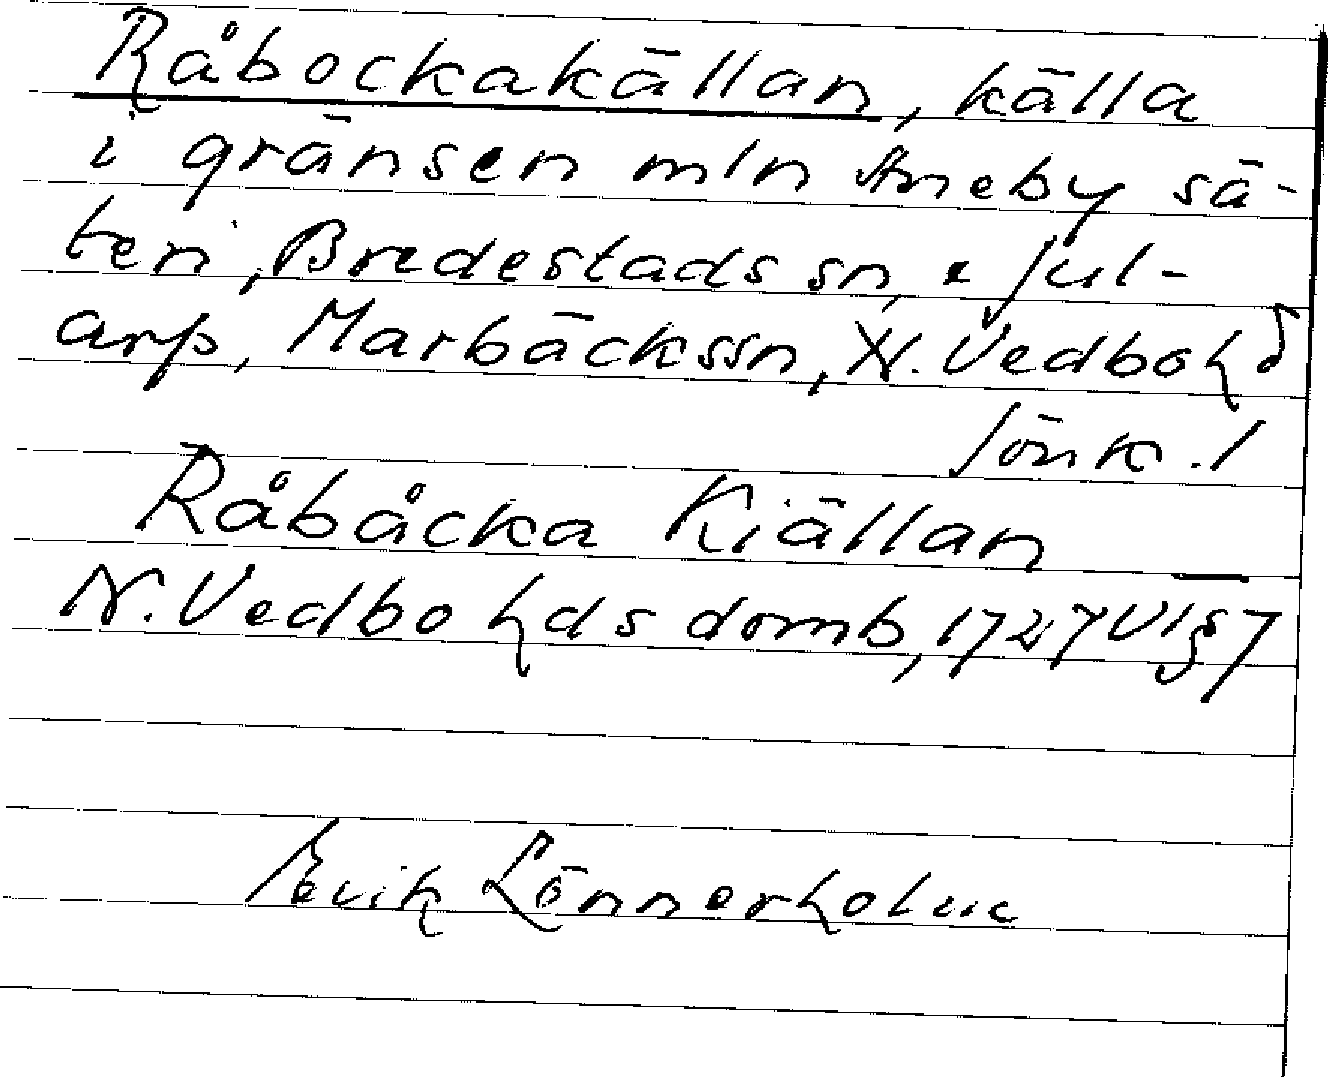 Råbockakällan, källa
i gränsen mln Aneby sä-
teri, Bredestads sn, o Jul-
arp, Marbäcks sn, N. Vedbo hd
Jönk. l
Råbåcka Kiällan
N. Vedbo hds domb, 1727 VI § 7
Erik Lönnerholm